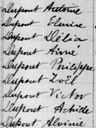 Dupont Antoine
Dupont Elmire
Dupont Délia
Dupont Aimé
Dupont Philippe
Dupont Zoël
Dupont Victor
Dupont Achille
Dupont Alvinie